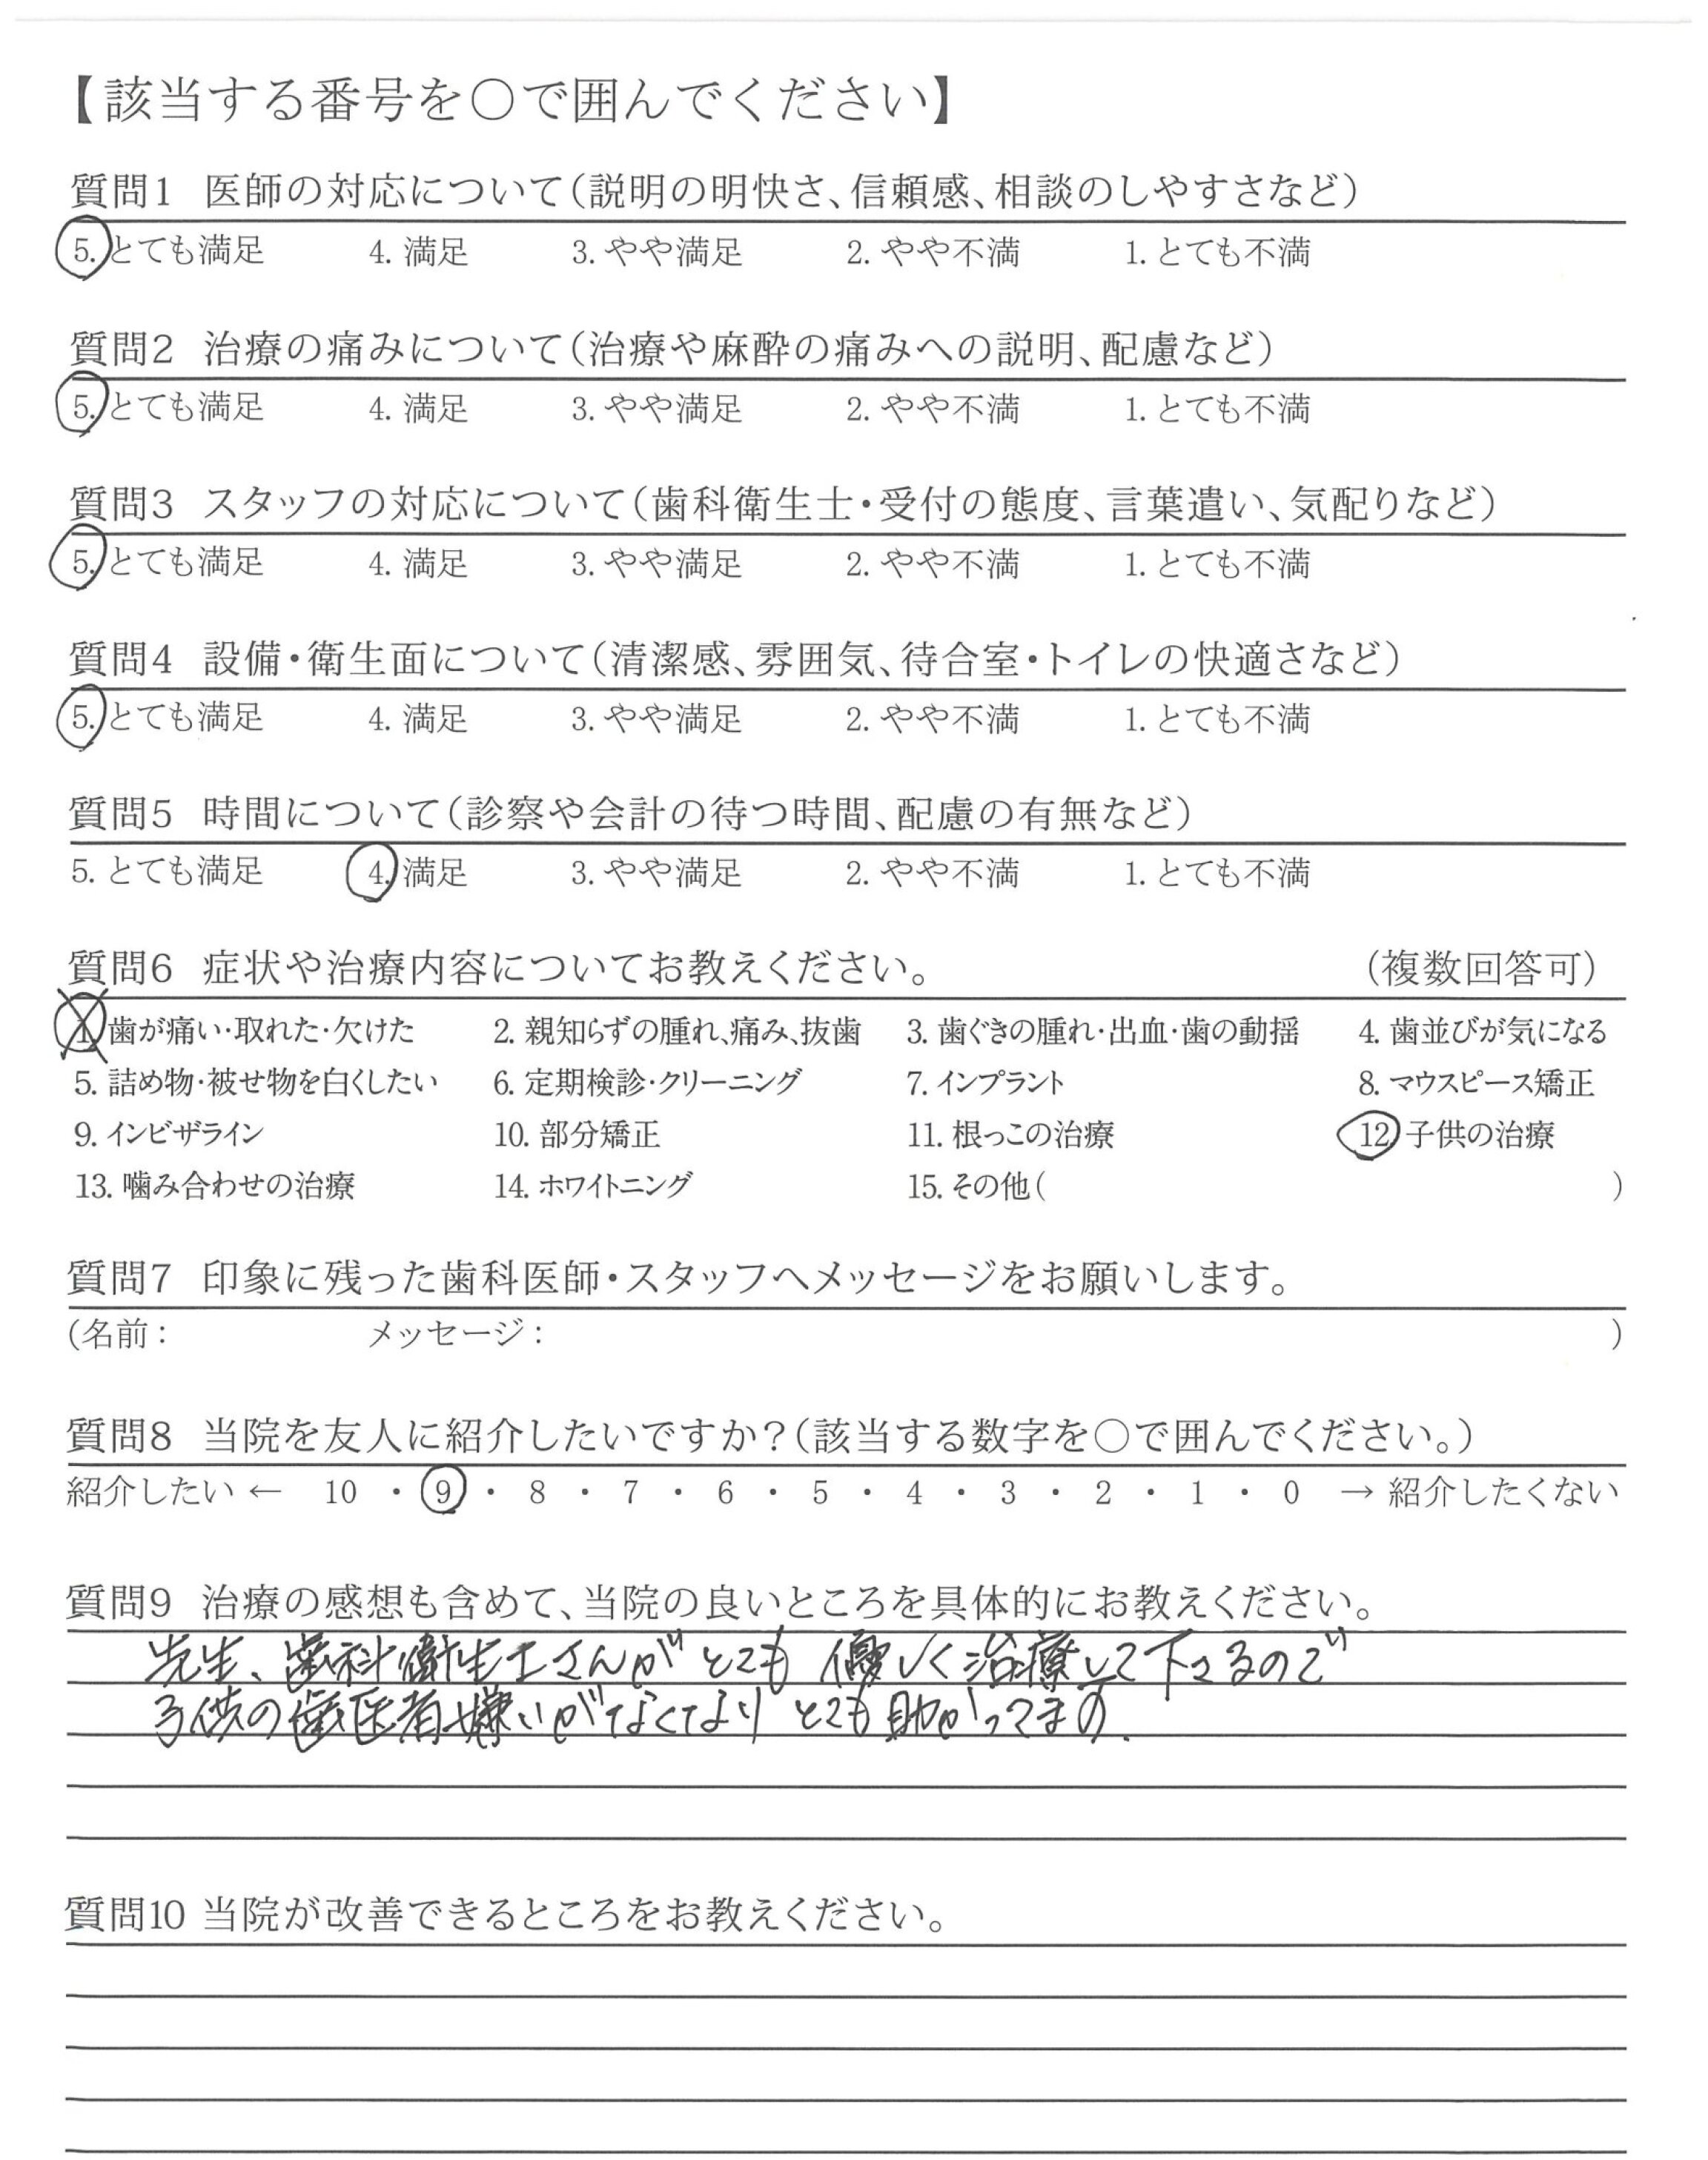 【該当する番号を○で囲んでください】
質問1 医師の対応について(説明の明快さ、信頼感、相談のしやすさなど)
5. とても満足 4. 満足 3. やや満足 2. やや不満 1. とても不満
質問2 治療の痛みについて(治療や麻酔の痛みへの説明、配慮など)
5. とても満足 4. 満足 3. やや満足 2. やや不満 1. とても不満
質問3 スタッフの対応について(歯科衛生士・受付の態度、言葉遣い、気配りなど)
5. とても満足 4. 満足 3. やや満足 2. やや不満 1. とても不満
質問4 設備・衛生面について(清潔感、雰囲気、待合室・トイレの快適さなど)
5. とても満足 4. 満足 3. やや満足 2. やや不満 1. とても不満
質問5 時間について(診察や会計の待つ時間、配慮の有無など)
5. とても満足 4. 満足 3. やや満足 2. やや不満 1. とても不満
質問6 症状や治療内容についてお教えください。 (複数回答可)
1. 歯が痛い・取れた・欠けた 2. 親知らずの腫れ、痛み、抜歯 3. 歯ぐきの腫れ・出血・歯の動揺 4. 歯並びが気になる
5. 詰め物・被せ物を白くしたい 6. 定期検診・クリーニング 7. インプラント 8. マウスピース矯正
9. インビザライン 10. 部分矯正 11. 根っこの治療 12. 子供の治療
13. 噛み合わせの治療 14. ホワイトニング 15. その他( )
質問7 印象に残った歯科医師・スタッフへメッセージをお願いします。
(名前: メッセージ: )
質問8 当院を友人に紹介したいですか?(該当する数字を○で囲んでください。)
紹介したい ← 10 ・ 9 ・ 8 ・ 7 ・ 6 ・ 5 ・ 4 ・ 3 ・ 2 ・ 1 ・ 0 → 紹介したくない
質問9 治療の感想も含めて、当院の良いところを具体的にお教えください。
先生、歯科衛生士さんがとても優しく治療して下さるので
子供の歯医者嫌いがなくなりとても助かってます.
質問10 当院が改善できるところをお教えください。